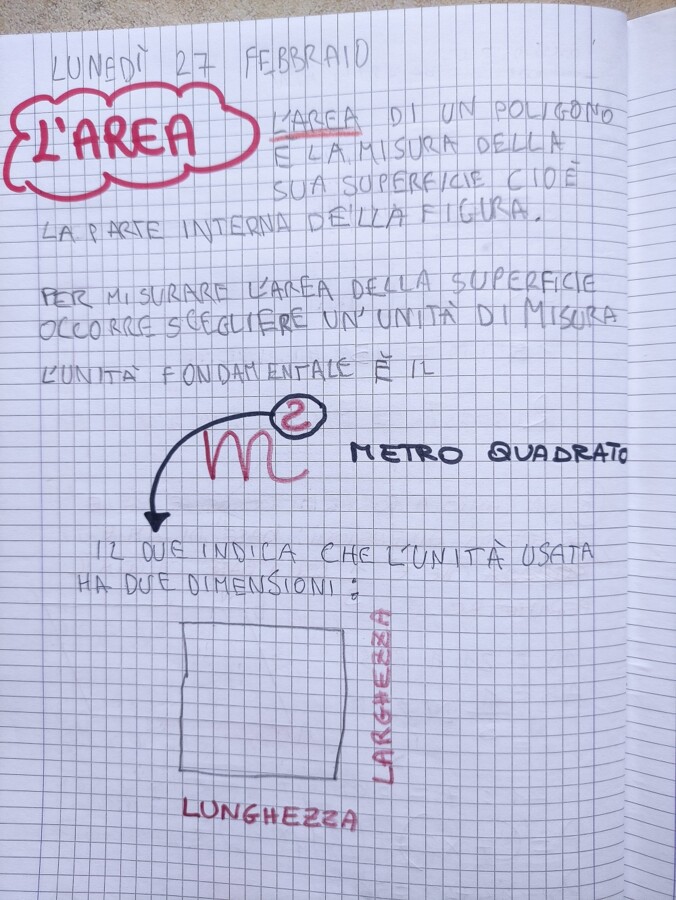 LUNEDÌ 27 FEBBRAIO
L'AREA
L'AREA DI UN POLIGONO
È LA MISURA DELLA
SUA SUPERFICIE CIOÈ
LA PARTE INTERNA DELLA FIGURA.
PER MISURARE L'AREA DELLA SUPERFICIE
OCCORRE SCEGLIERE UN'UNITÀ DI MISURA
L'UNITÀ FONDAMENTALE È IL
m² METRO QUADRATO
IL DUE INDICA CHE L'UNITÀ USATA
HA DUE DIMENSIONI:
LARGHEZZA
LUNGHEZZA